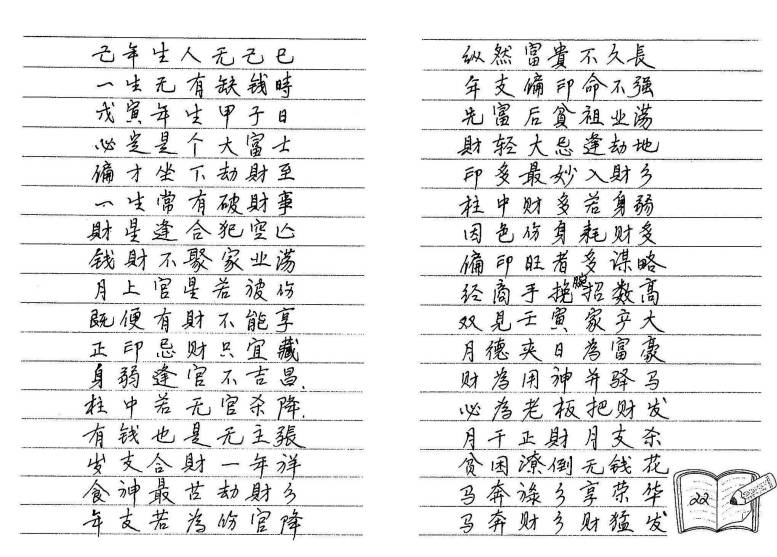 己年生人无己巳
一生无有缺钱時
戊寅年生甲子日
必定是个大富士
偏才坐下劫財至
一生常有破財事
財星逢合犯空亡
钱財不聚家业荡
月上官星若被伤
既便有財不能享
正印忌财只宜藏
身弱逢官不吉昌.
柱中若无官杀降.
有钱也是无主張
岁支合財一年祥
食神最苦劫財乡
年支若為伤官降
纵然富貴不久長
年支偏印命不强
先富后贫祖业荡
財轻大忌逢劫地
印多最妙入財乡
柱中财多若身弱
因色伤身耗财多
偏印旺者多谋略
经商手挽腕招数高
双見壬寅家产大
月德夹日為富豪
财為用神并驿马
必為老板把财发
月干正財月支杀
贫困潦倒无钱花
马奔禄乡享荣华
马奔财乡财猛发
22